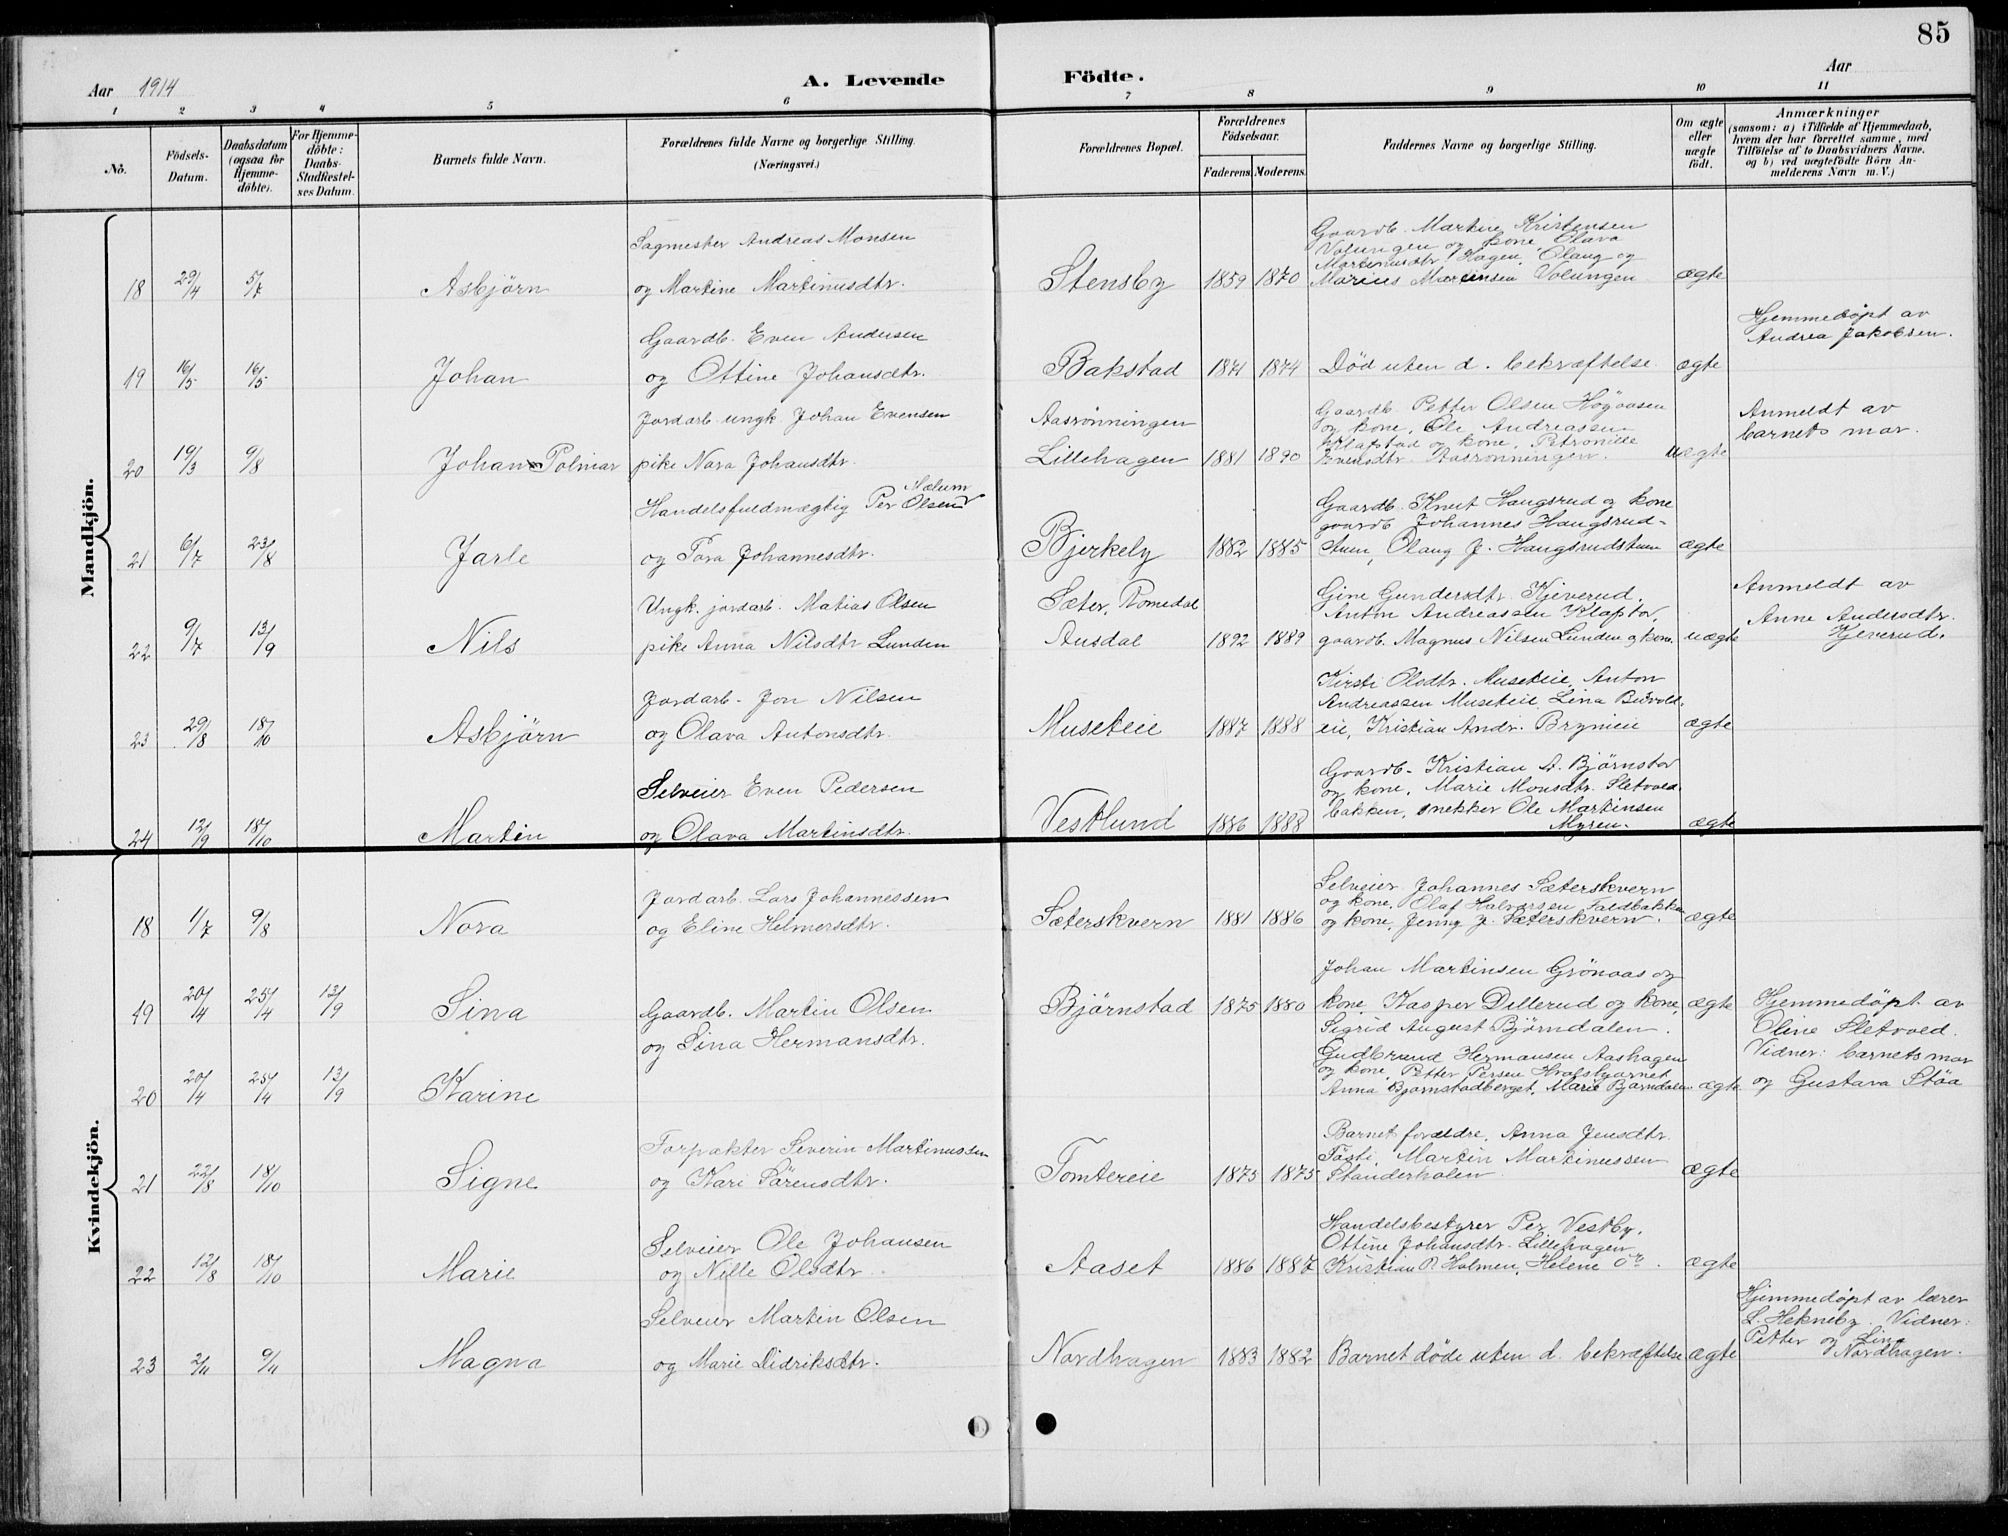 85
Aar 1914
A. Levende Födte.
Aar
1 2 3 4 5 6 7 8 9 10 11
No.
Födsels-Datum.
Daabsdatum (ogsaa for Hjemme-döbte).
For Hjemme-döbte: Daabs-Stadfæstel-ses Datum.
Barnets fulde Navn.
Forældrenes fulde Navne og borgerlige Stilling. (Næringsvei.)
Forældrenes Bopæl.
Forældrenes Födselsaar.
Faderens. Moderens.
Faddernes Navne og borgerlige Stilling.
Om ægte eller uægte födt.
Anmærkninger (saasom: a) i Tilfælde af Hjemmedaab, hvem der har forrettet samme, med Tilföielse af to Daabsvidners Navne, og b) ved uægtefödte Börn An-melderens Navn m. V.)
Mandkjön.
18 29/4 5/7 Asbjörn
Sagmester Andreas Monsen
og Martine Martinusdtr.
Stensby 1859 1870
Gaardb. Martin Kristensen
Volungen og kone, Olava
Martinusdtr. Hagen, Olaug og
Marius Martinsen Volungen
ægte
19 16/5 16/5 Johan
Gaardb. Even Andersen
og Ottine Johansdtr.
Bakstad 1871 1874
Död uten d. bekræftelse.
ægte
Hjemmedöpt av
Andrea Jakobsen.
20 19/3 9/8 Johan Polmar
Jordarb. ungk. Johan Evensen
pike Nora Johansdtr.
Aasrönningen
Lillehagen 1881 1890
Gaardb. Petter Olsen Högaasen
og kone, Ole Andreassen
Klafstad og kone, Petronille
Evensdtr. Aasrönningen.
uægte
Anmeldt av
barnets mor.
21 6/7 23/8 Jarle
Handelsfuldmægtig Per Olsen Mælum
og Tora Johannesdtr.
Bjerkely 1882 1885
Gaardb. Knut Haugsrud og kone
gaardb. Johannes Haugsrud-
stuen, Olaug J. Haugsrudstuen
ægte
22 9/7 13/9 Nils
Ungk. jordarb. Matias Olsen
pike Anna Nilsdtr Lunden
Sæter, Romedal
Ausdal 1892 1889
Gine Gundersdtr. Kjeverud,
Anton Andreassen Klafstor,
gaardb. Magnus Nilsen Lunden og kone.
uægte
Anmeldt av
Anne Andersdtr.
Kjeverud.
23 29/8 18/10 Asbjörn
Jordarb. Jon Nilsen
og Olava Antonsdtr.
Museteie 1887 1888
Kirsti Olsdtr. Museteie, Anton
Andreassen Museteie, Lina
eie, Kristian Andr. Brynieie
ægte
24 12/9 18/10 Martin
Selveier Even Pedersen
og Olava Martinsdtr.
Vestlund 1886 1888
Gaardb. Kristian A. Björnstad
og kone, Marie Monsdtr. Sletvold-
bakken, snekker Ole Martinsen
Myren.
ægte
Kvindekjön.
18 1/7 9/8 Nora
Jordarb. Lars Johannessen
og Eline Helmersdtr.
Sæterskvern 1881 1886
Selveier Johannes Sæterskvern
og kone, Olaf Halvorsen Faldbakken
og kone, Jenny J. Sæterskvern.
ægte
19 20/4 25/4 13/9 Sina
Gaardb. Martin Olsen
og Sina Hermansdtr.
Björnstad 1875 1880
Johan Martinsen Grönaas og
kone, Kasper Dillerud og kone,
Sigrid August Björndalen.
ægte
Hjemmedöpt av
Oline Sletvold.
Vidner: barnets mor
og Gustava Stöa
20 20/4 25/4 13/9 Karine
Gudbrand Hermansen Aashagen
og kone, Petter Persen
Anna Björnstadberget, Marie Björndalen
ægte
21 22/8 18/10 Signe
Forpakter Severin Martinussen
og Kari Sörensdtr.
Tomtereie 1875 1875
Barnet forældre, Anna Jensdtr.
Tösti, Martin Martinussen
Standerholen.
ægte
22 12/8 18/10 Marie
Selveier Ole Johansen
og Nille Olsdtr.
Aaset 1886 1887
Handelsbestyrer Per Vestby,
Ottine Johansdtr. Lillehagen,
Kristian P. Holmen, Helene
ægte
23 2/11 9/11 Magna
Selveier Martin Olsen
og Marie Didriksdtr.
Nordhagen 1883 1882
Barnet döde uten d. bekræftelse
ægte
Hjemmedöpt av lærer
L. Hekneby. Vidner:
Petter og Lina
Nordhagen.